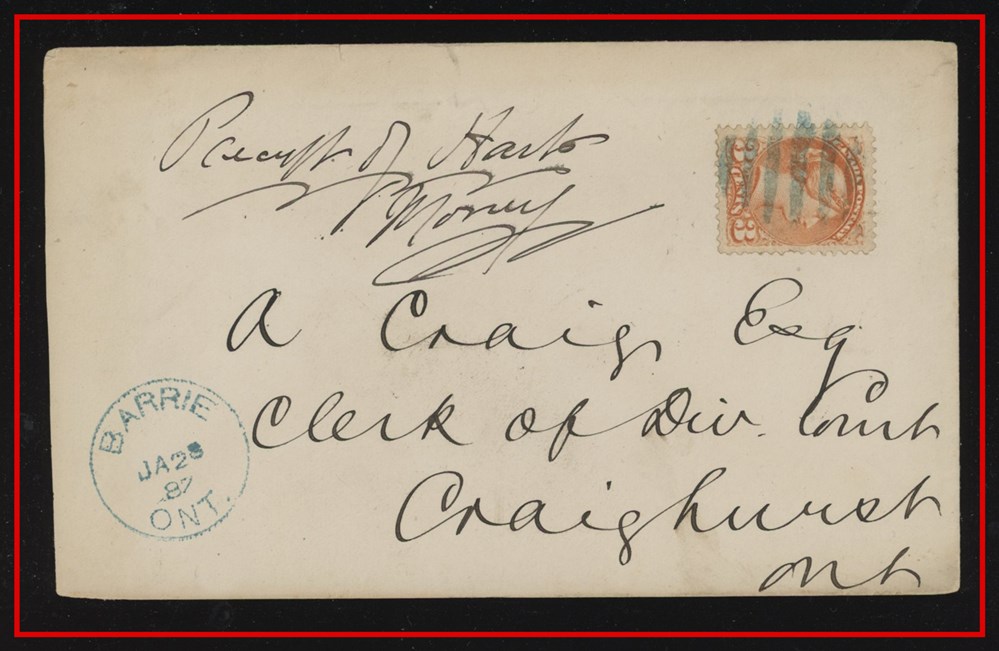 Receipt of Harts
Money
A Craig, Esq
Clerk of Div. Court
Craighurst
Ont
BARRIE
JA 28
87
ONT.
CANADA POSTAGE
3 3